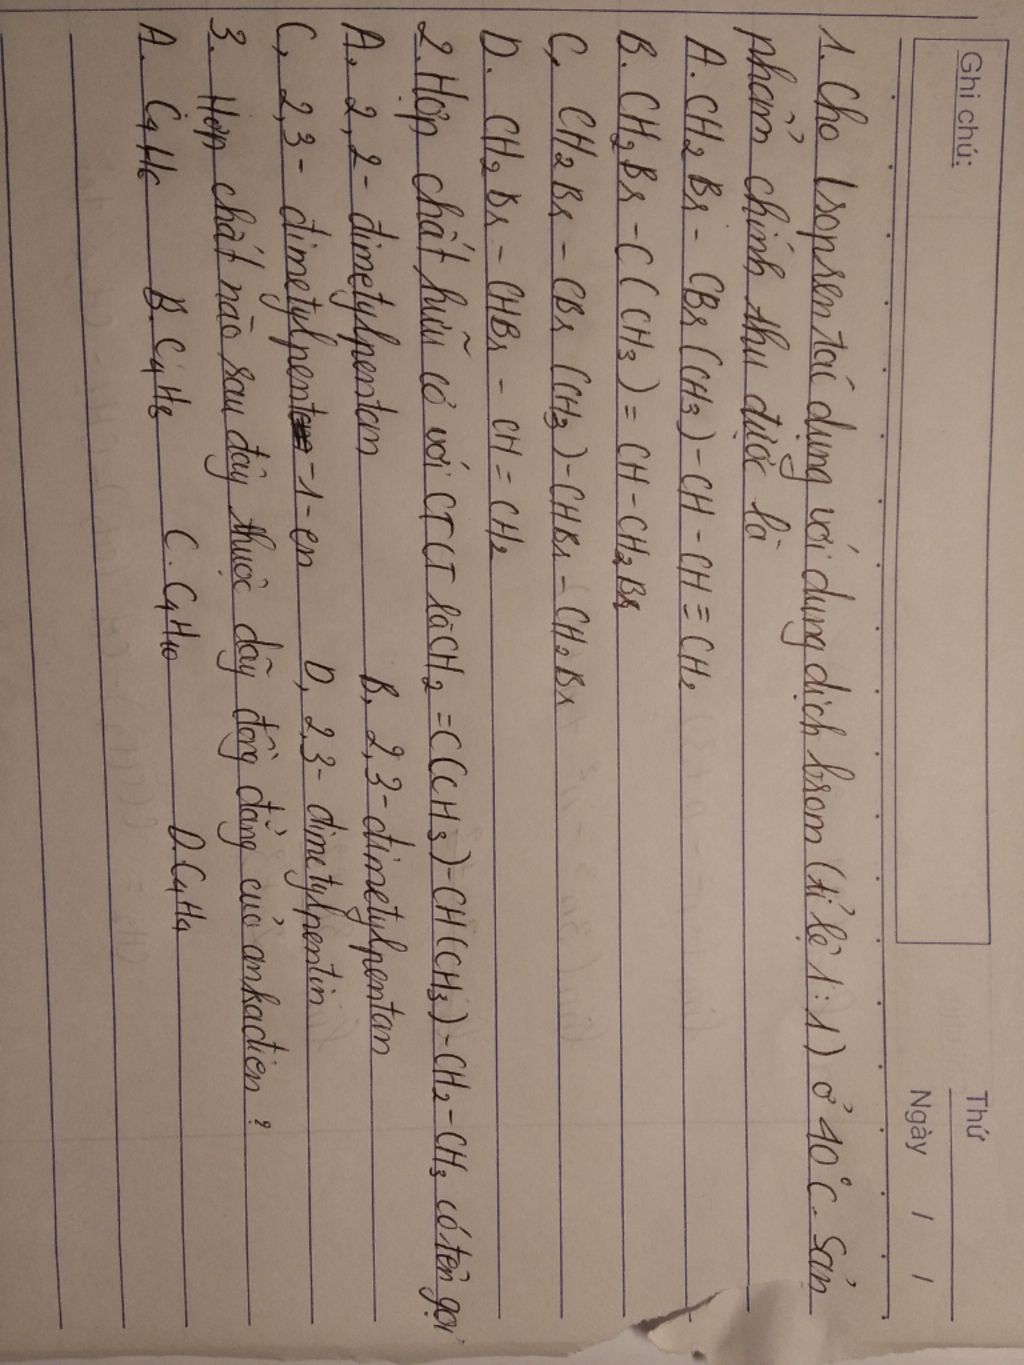 Ghi chú:
Thứ
Ngày / /
1. Cho Isopren tác dụng với dung dịch brom (tỉ lệ 1:1) ở 40°C. Sản
phẩm chính thu được là
A. CH2Br - CBr(CH3) - CH - CH = CH2
B. CH2Br - C(CH3) = CH - CH2Br
C, CH2Br - CBr (CH3) - CHBr - CH2Br
D. CH2Br - CHBr - CH = CH2
2. Hợp chất hữu cơ với CTCT là CH2 = C(CH3) - CH(CH3) - CH2 - CH3 có tên gọi
A, 2,2 - đimetylpentan B, 2,3 - đimetylpentan
C, 2,3 - đimetylpent - 1 - en D, 2,3 - đimetylpentin
3. Hợp chất nào sau đây thuộc dãy đồng đẳng của ankađien?
A. C4H6 B. C4H8 C. C4H10 D. C4H4